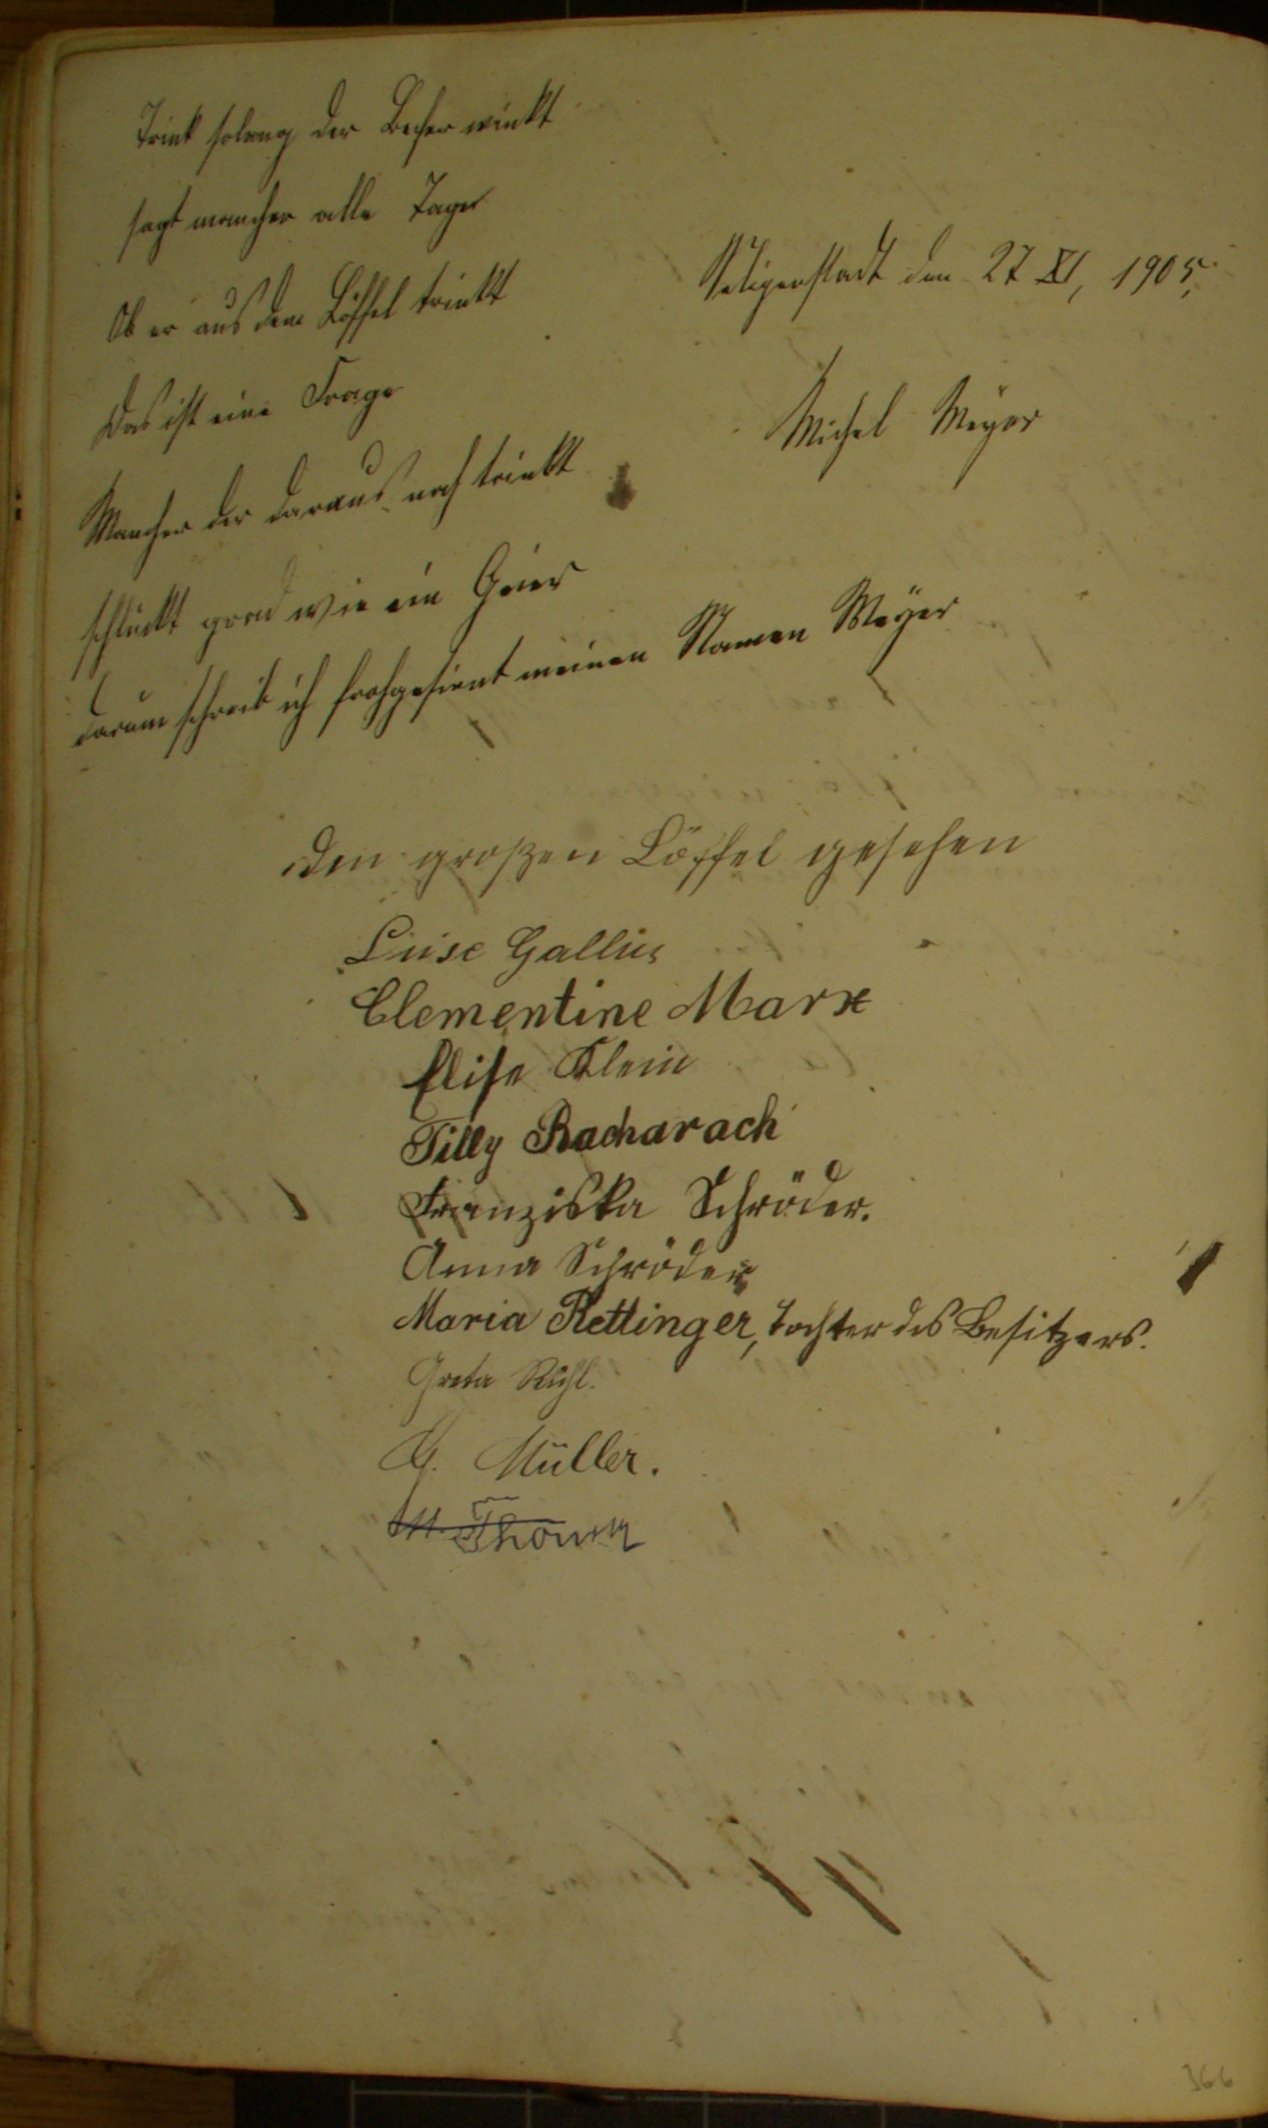 Trink solang der Becher winkt
sagt mancher alle Tage
Ob er aus dem Löffel trinkt
Das ist eine Frage
Mancher der daraus noch trinkt
schluckt grad wie ein Geier
darum schreib ich frohgesinnt meinen Namen Meyer
Seligenstadt den 27 XI, 1905,
Michel Meyer
Den großen Löffel gesehen
Luise Gallus
Clementine Marx
Elise Klein
Tilly Bacharach
Franziska Schröder.
Anna Schröder
Maria Rettinger, Tochter des Besitzers.
Greta Rühl.
Müller.
366